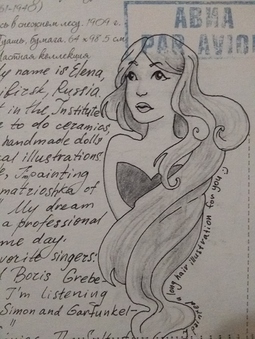 1-1940)
сь в снежном лесу. 1909 г.
уашь, бумага. 64 x 98.5 см
Частная коллекция
АВИА
PAR AVION
y name is Elena,
Russia.
t in the Institute
e to do ceramics,
handmade dolls
cal illustrations.
painting
matrioshka of
" My dream
a professional
me day.
vorite singers:
d Boris Grebe-
I'm listening
"Simon and Garfunkel-
long hair illustration for you :)